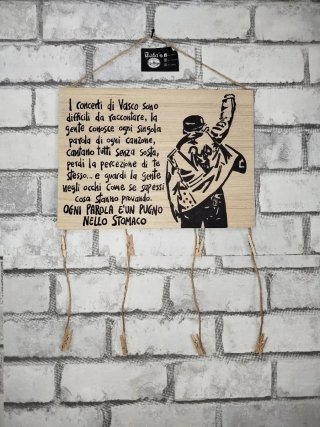 I concerti di Vasco sono
difficili da raccontare, la
gente conosce ogni singola
parola di ogni canzone,
cantano tutti senza sosta,
perdi la percezione di te
stesso... e guardi la gente
negli occhi come se sapessi
cosa stanno provando.
OGNI PAROLA È UN PUGNO
NELLO STOMACO